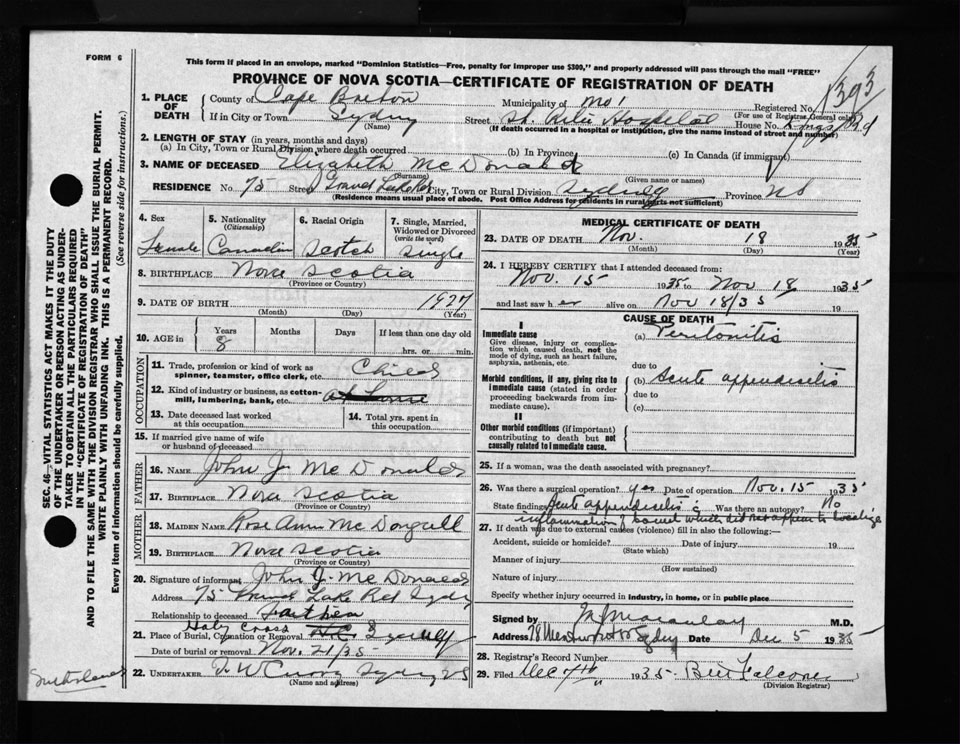 FORM 6
This form if placed in an envelope, marked "Dominion Statistics—Free, penalty for improper use $300," and properly addressed will pass through the mail "FREE"
PROVINCE OF NOVA SCOTIA—CERTIFICATE OF REGISTRATION OF DEATH
1393
1. PLACE OF DEATH
County of Cape Breton
Municipality of
Registered No.
(For use of Registrar General only)
If in City or Town Sydney
(Name)
Street St. Rita Hospital
House No. Kings Rd
(If death occurred in a hospital or institution, give the name instead of street and number)
2. LENGTH OF STAY (in years, months and days)
(a) In City, Town or Rural Division where death occurred
(b) In Province
(c) In Canada (if immigrant)
3. NAME OF DECEASED Elizabeth McDonald
(Surname)
(Given name or names)
RESIDENCE No. 75 Street Grand Lake Rd City, Town or Rural Division Sydney Province NS
(Residence means usual place of abode. Post Office Address for residents in rural parts not sufficient)
4. Sex
Female
5. Nationality
(Citizenship)
Canadian
6. Racial Origin
Scotch
7. Single, Married, Widowed or Divorced
(write the word)
Single
8. BIRTHPLACE Nova Scotia
(Province or Country)
9. DATE OF BIRTH 1927
(Month) (Day) (Year)
10. AGE in
Years
8
Months
Days
If less than one day old
hrs. or min.
OCCUPATION
11. Trade, profession or kind of work as spinner, teamster, office clerk, etc. Child
12. Kind of industry or business, as cotton-mill, lumbering, bank, etc. at home
13. Date deceased last worked at this occupation
14. Total yrs. spent in this occupation
15. If married give name of wife or husband of deceased
FATHER
16. NAME John J McDonald
17. BIRTHPLACE Nova Scotia
(Province or Country)
MOTHER
18. MAIDEN NAME Rose Ann McDougall
19. BIRTHPLACE Nova Scotia
(Province or Country)
20. Signature of informant John J. McDonald
Address 75 Grand Lake Rd Sydney
Relationship to deceased Father
21. Place of Burial, Cremation or Removal Holy Cross Sydney
Date of burial or removal Nov. 21/35
22. UNDERTAKER Sydney NS
(Name and address)
MEDICAL CERTIFICATE OF DEATH
23. DATE OF DEATH Nov. 18 1935
(Month) (Day) (Year)
24. I HEREBY CERTIFY that I attended deceased from:
Nov. 15 1935 to Nov 18 1935
and last saw her alive on Nov 18/35 19
CAUSE OF DEATH
I
Immediate cause
Give disease, injury or complication which caused death, not the mode of dying, such as heart failure, asphyxia, asthenia, etc.
(a) Peritonitis
due to
Morbid conditions, if any, giving rise to immediate cause (stated in order proceeding backwards from immediate cause).
(b) Acute appendicitis
due to
(c)
II
Other morbid conditions (if important) contributing to death but not causally related to immediate cause.
25. If a woman, was the death associated with pregnancy?
26. Was there a surgical operation? yes Date of operation Nov. 15 1935
State findings Acute appendicitis Was there an autopsy? No
inflammation of bowel which did not appear to localize
27. If death was due to external causes (violence) fill in also the following:—
Accident, suicide or homicide? Date of injury 19
(State which)
Manner of injury
(How sustained)
Nature of injury
Specify whether injury occurred in industry, in home, or in public place
Signed by M.D.
Address Sydney Date Dec 5 1935
28. Registrar's Record Number
29. Filed Dec 7th 1935
(Division Registrar)
SEC. 46—VITAL STATISTICS ACT MAKES IT THE DUTY OF THE UNDERTAKER OR PERSON ACTING AS UNDERTAKER TO OBTAIN ALL THE PARTICULARS REQUIRED IN THE "CERTIFICATE OF REGISTRATION OF DEATH" AND TO FILE THE SAME WITH THE DIVISION REGISTRAR WHO SHALL ISSUE THE BURIAL PERMIT.
WRITE PLAINLY WITH UNFADING INK. THIS IS A PERMANENT RECORD.
Every item of information should be carefully supplied.
(See reverse side for instructions.)